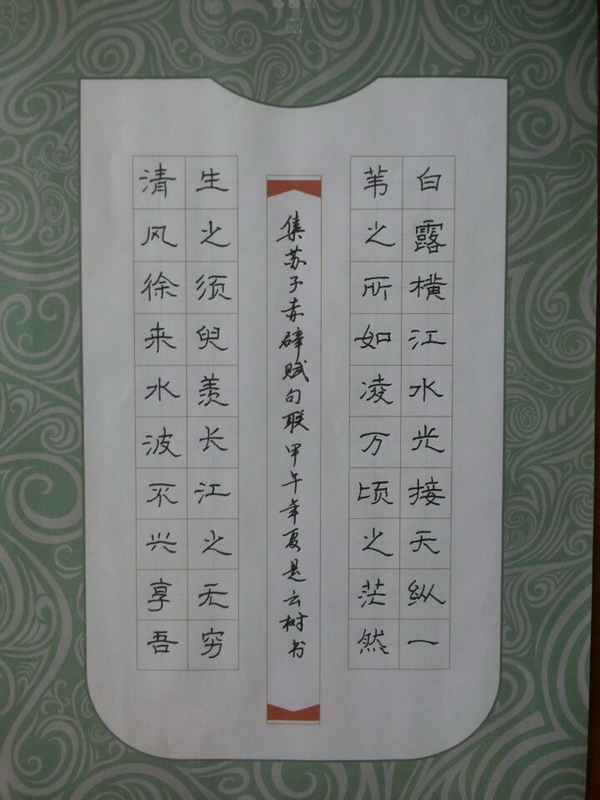 白露横江水光接天纵一
苇之所如凌万顷之茫然
集苏子赤辟赋句联甲午年夏是云树书
清风徐来水波不兴享吾
生之须臾羡长江之无穷